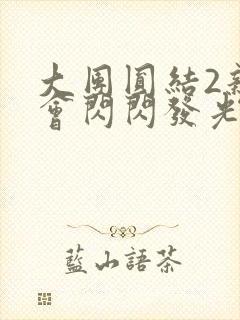 大團圓結2新
會閃閃發光
藍小語茶